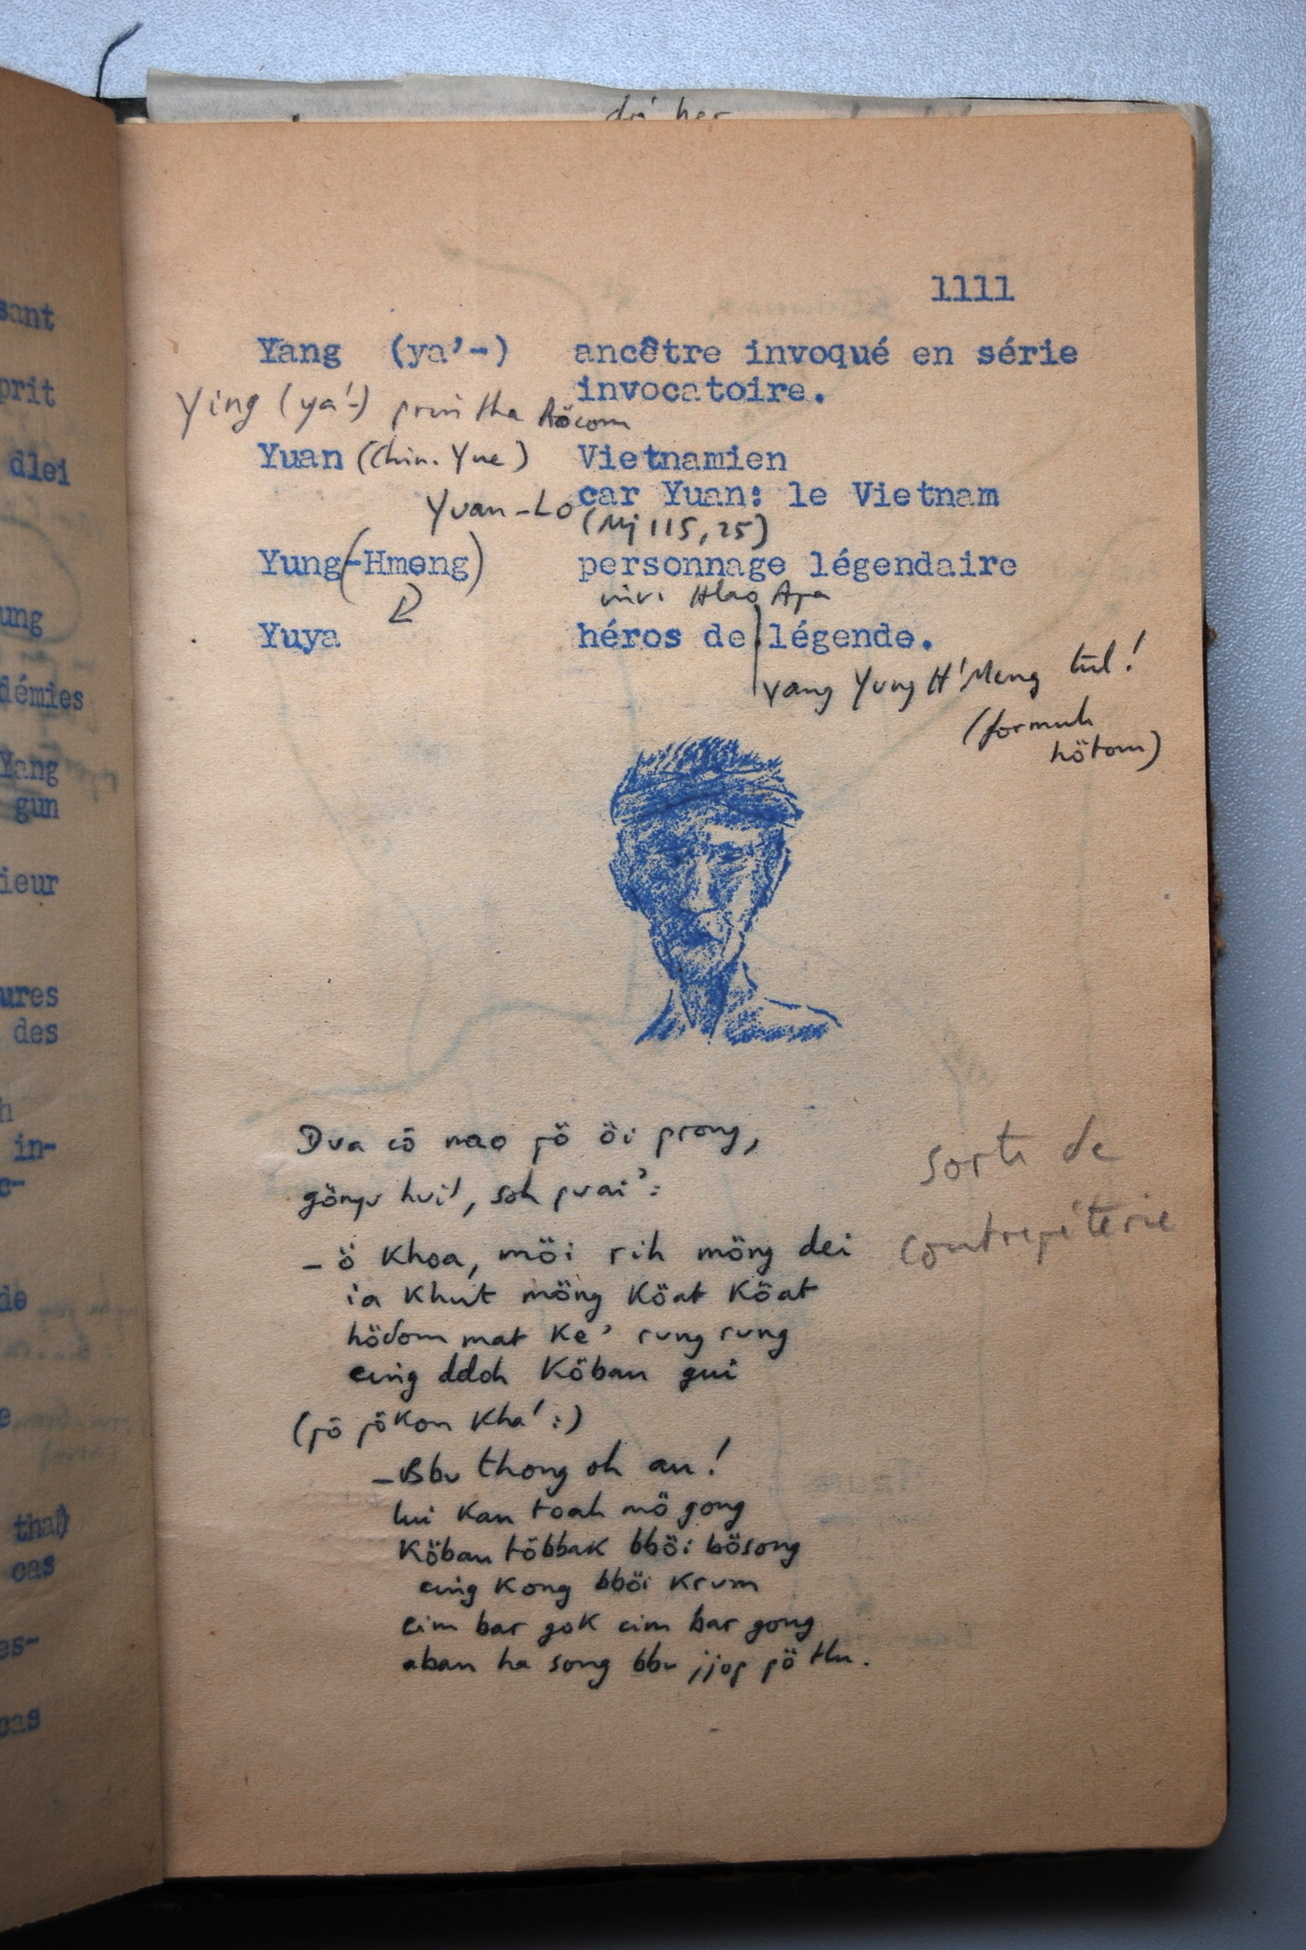 sant
prit
dlei
ung
démies
Yang
gun
ieur
ures
des
h
in-
c-
de
e
thaJ)
cas
es-
cas
1111
Yang (ya'-) ancêtre invoqué en série
invocatoire.
Ying (ya'-)
Yuan (Chin. Yue) Vietnamien
car Yuan: le Vietnam
Yuan-Lo (Mj 115,25)
Yung(-Hmeng) personnage légendaire
Hlao Apa
Yuya héros de légende.
yang Yung H'Meng tŭl!
(formule
hötom)
Dua cö nao pö öi prong,
gönyu hui', soh puai':
- ö Khoa, möi rih möng dei
ia Khut möng Köat Köat
hödom mat Ke' rung rung
cing ddoh Köban gui
(pö pökon Kha':)
- Bbu thong oh au!
lui Kan toah mö gong
Köban többak bböi bösong
cing Kong bböi Krum
cim bar gok cim bar gong
aban ha song bbu jjop pö tlu.
Sorte de
contrepèterie